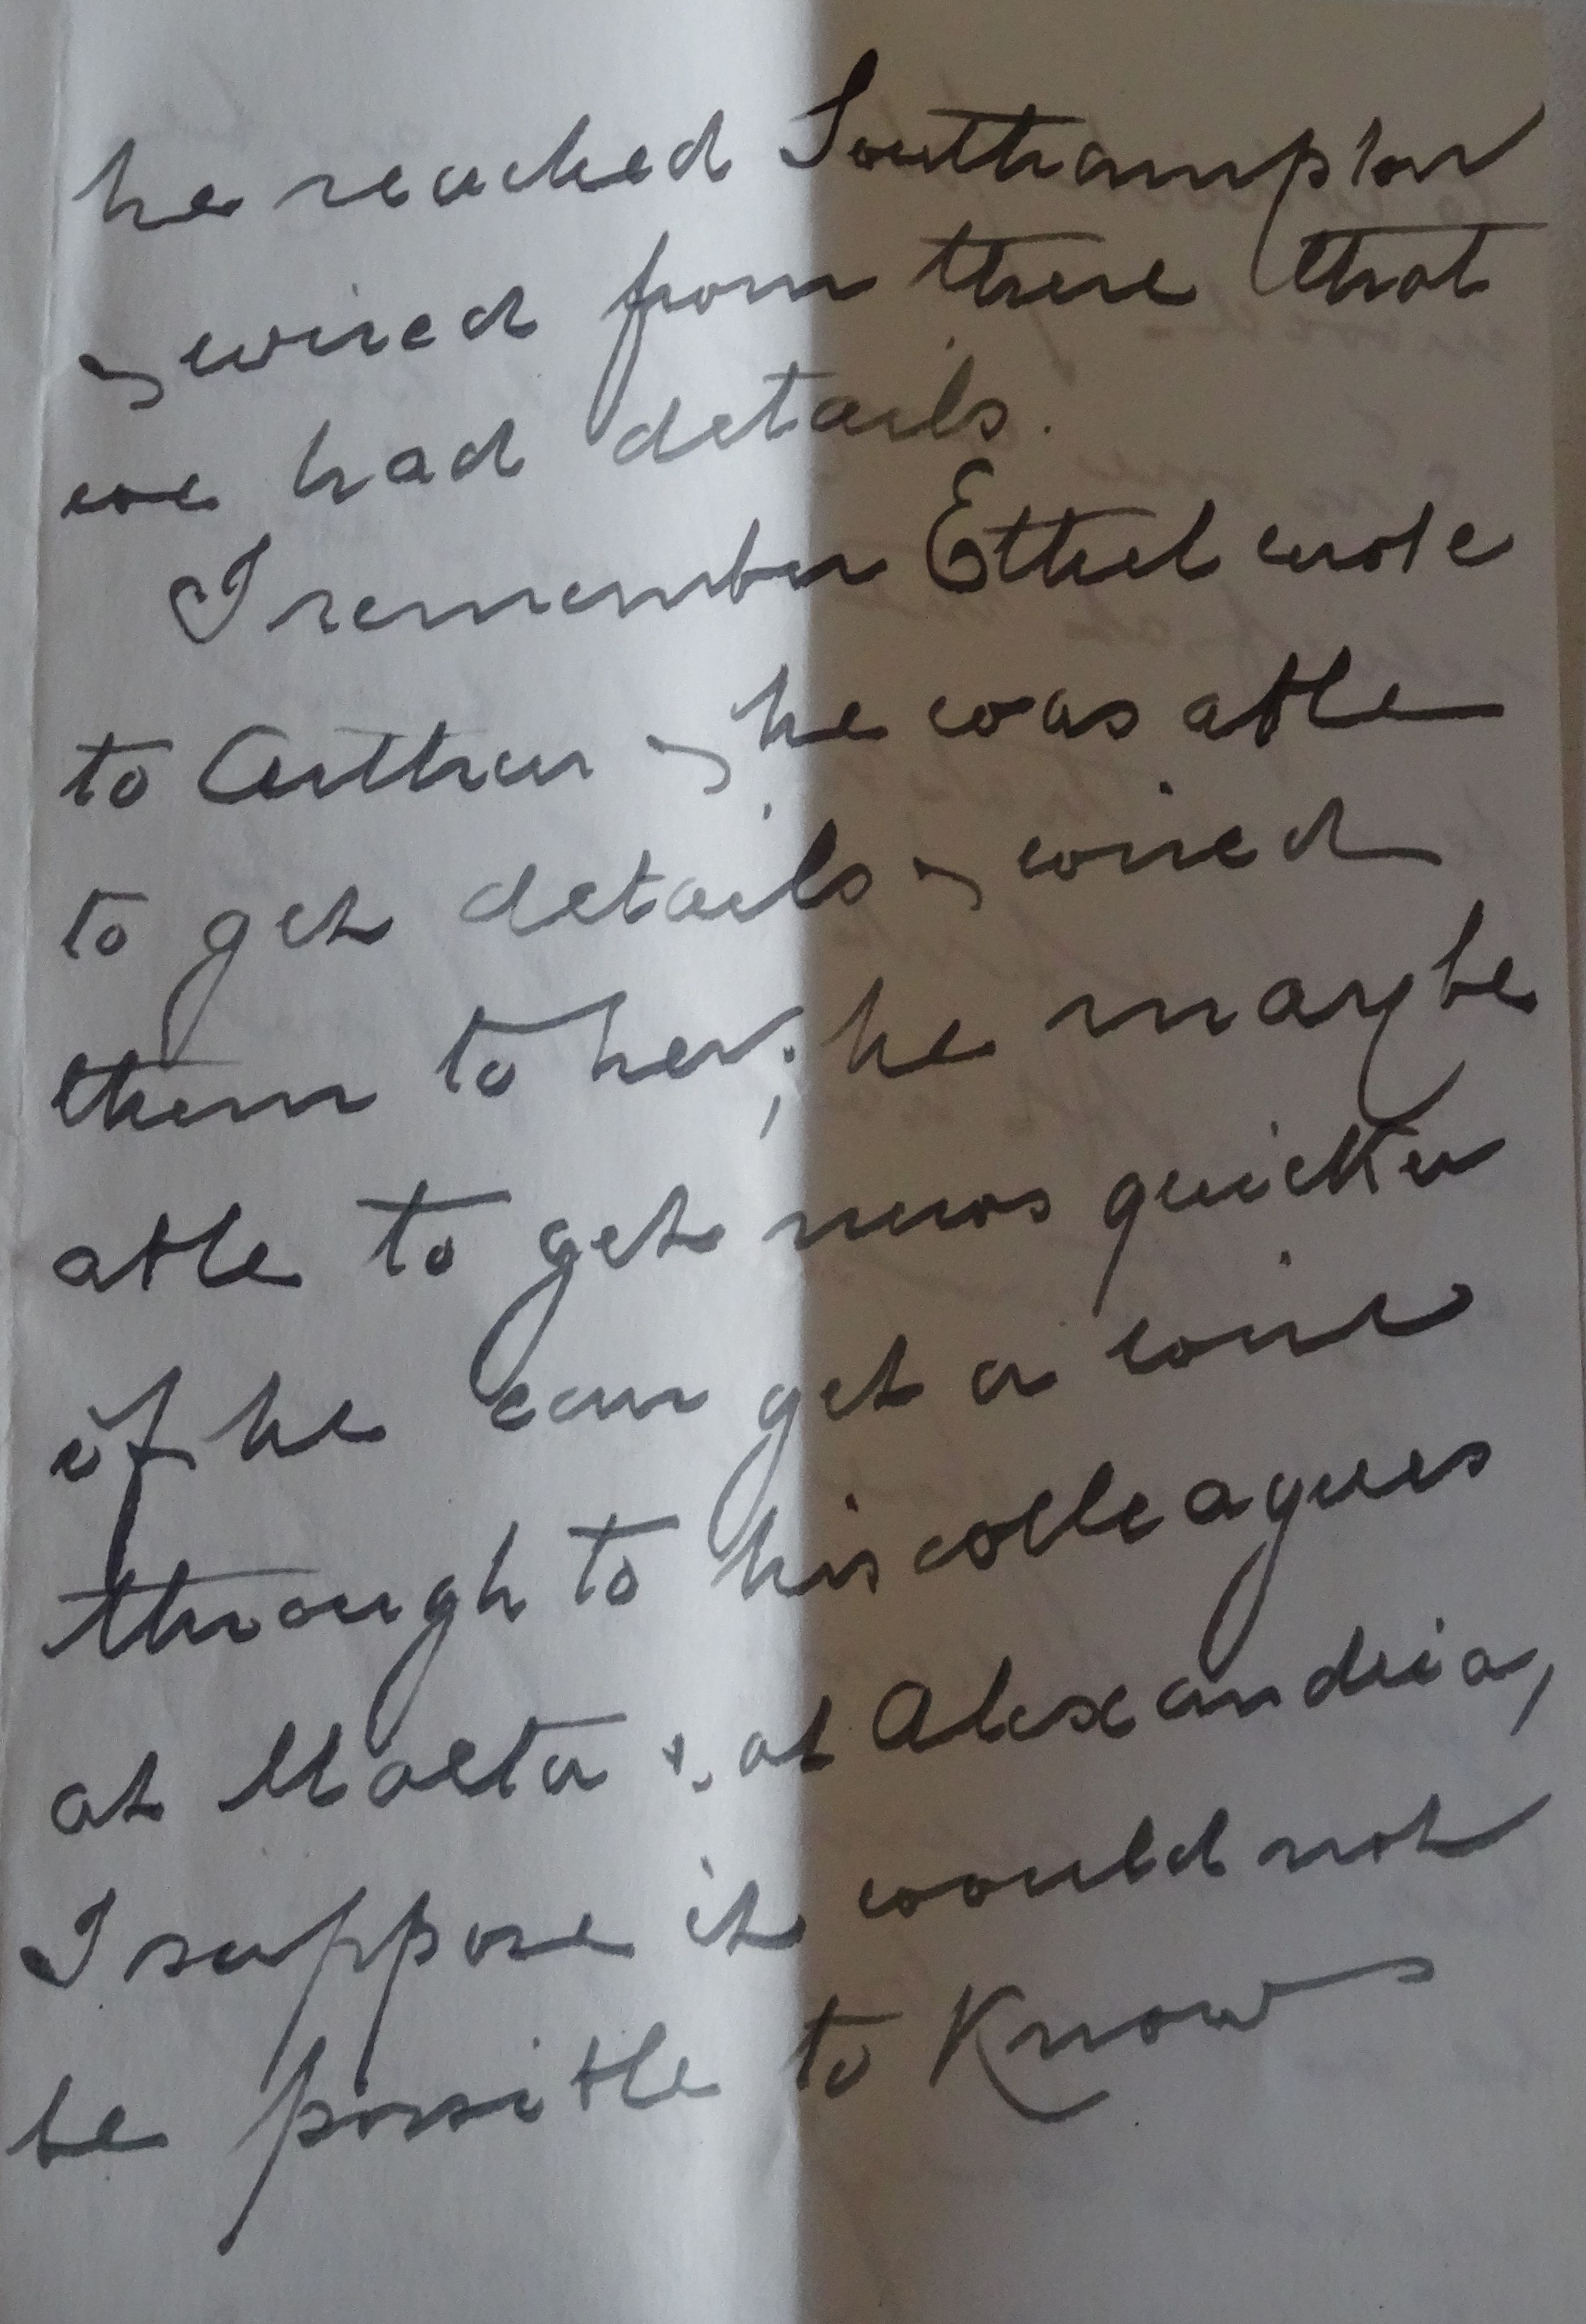 he reached Southampton
& wired from there that
we had details.
I remember Ethel wrote
to Arthur & he was able
to get details & wired
them to her; he may be
able to get news quicker
if he can get a wire
through to his colleagues
at Malta & at Alexandria,
I suppose it would not
be possible to know